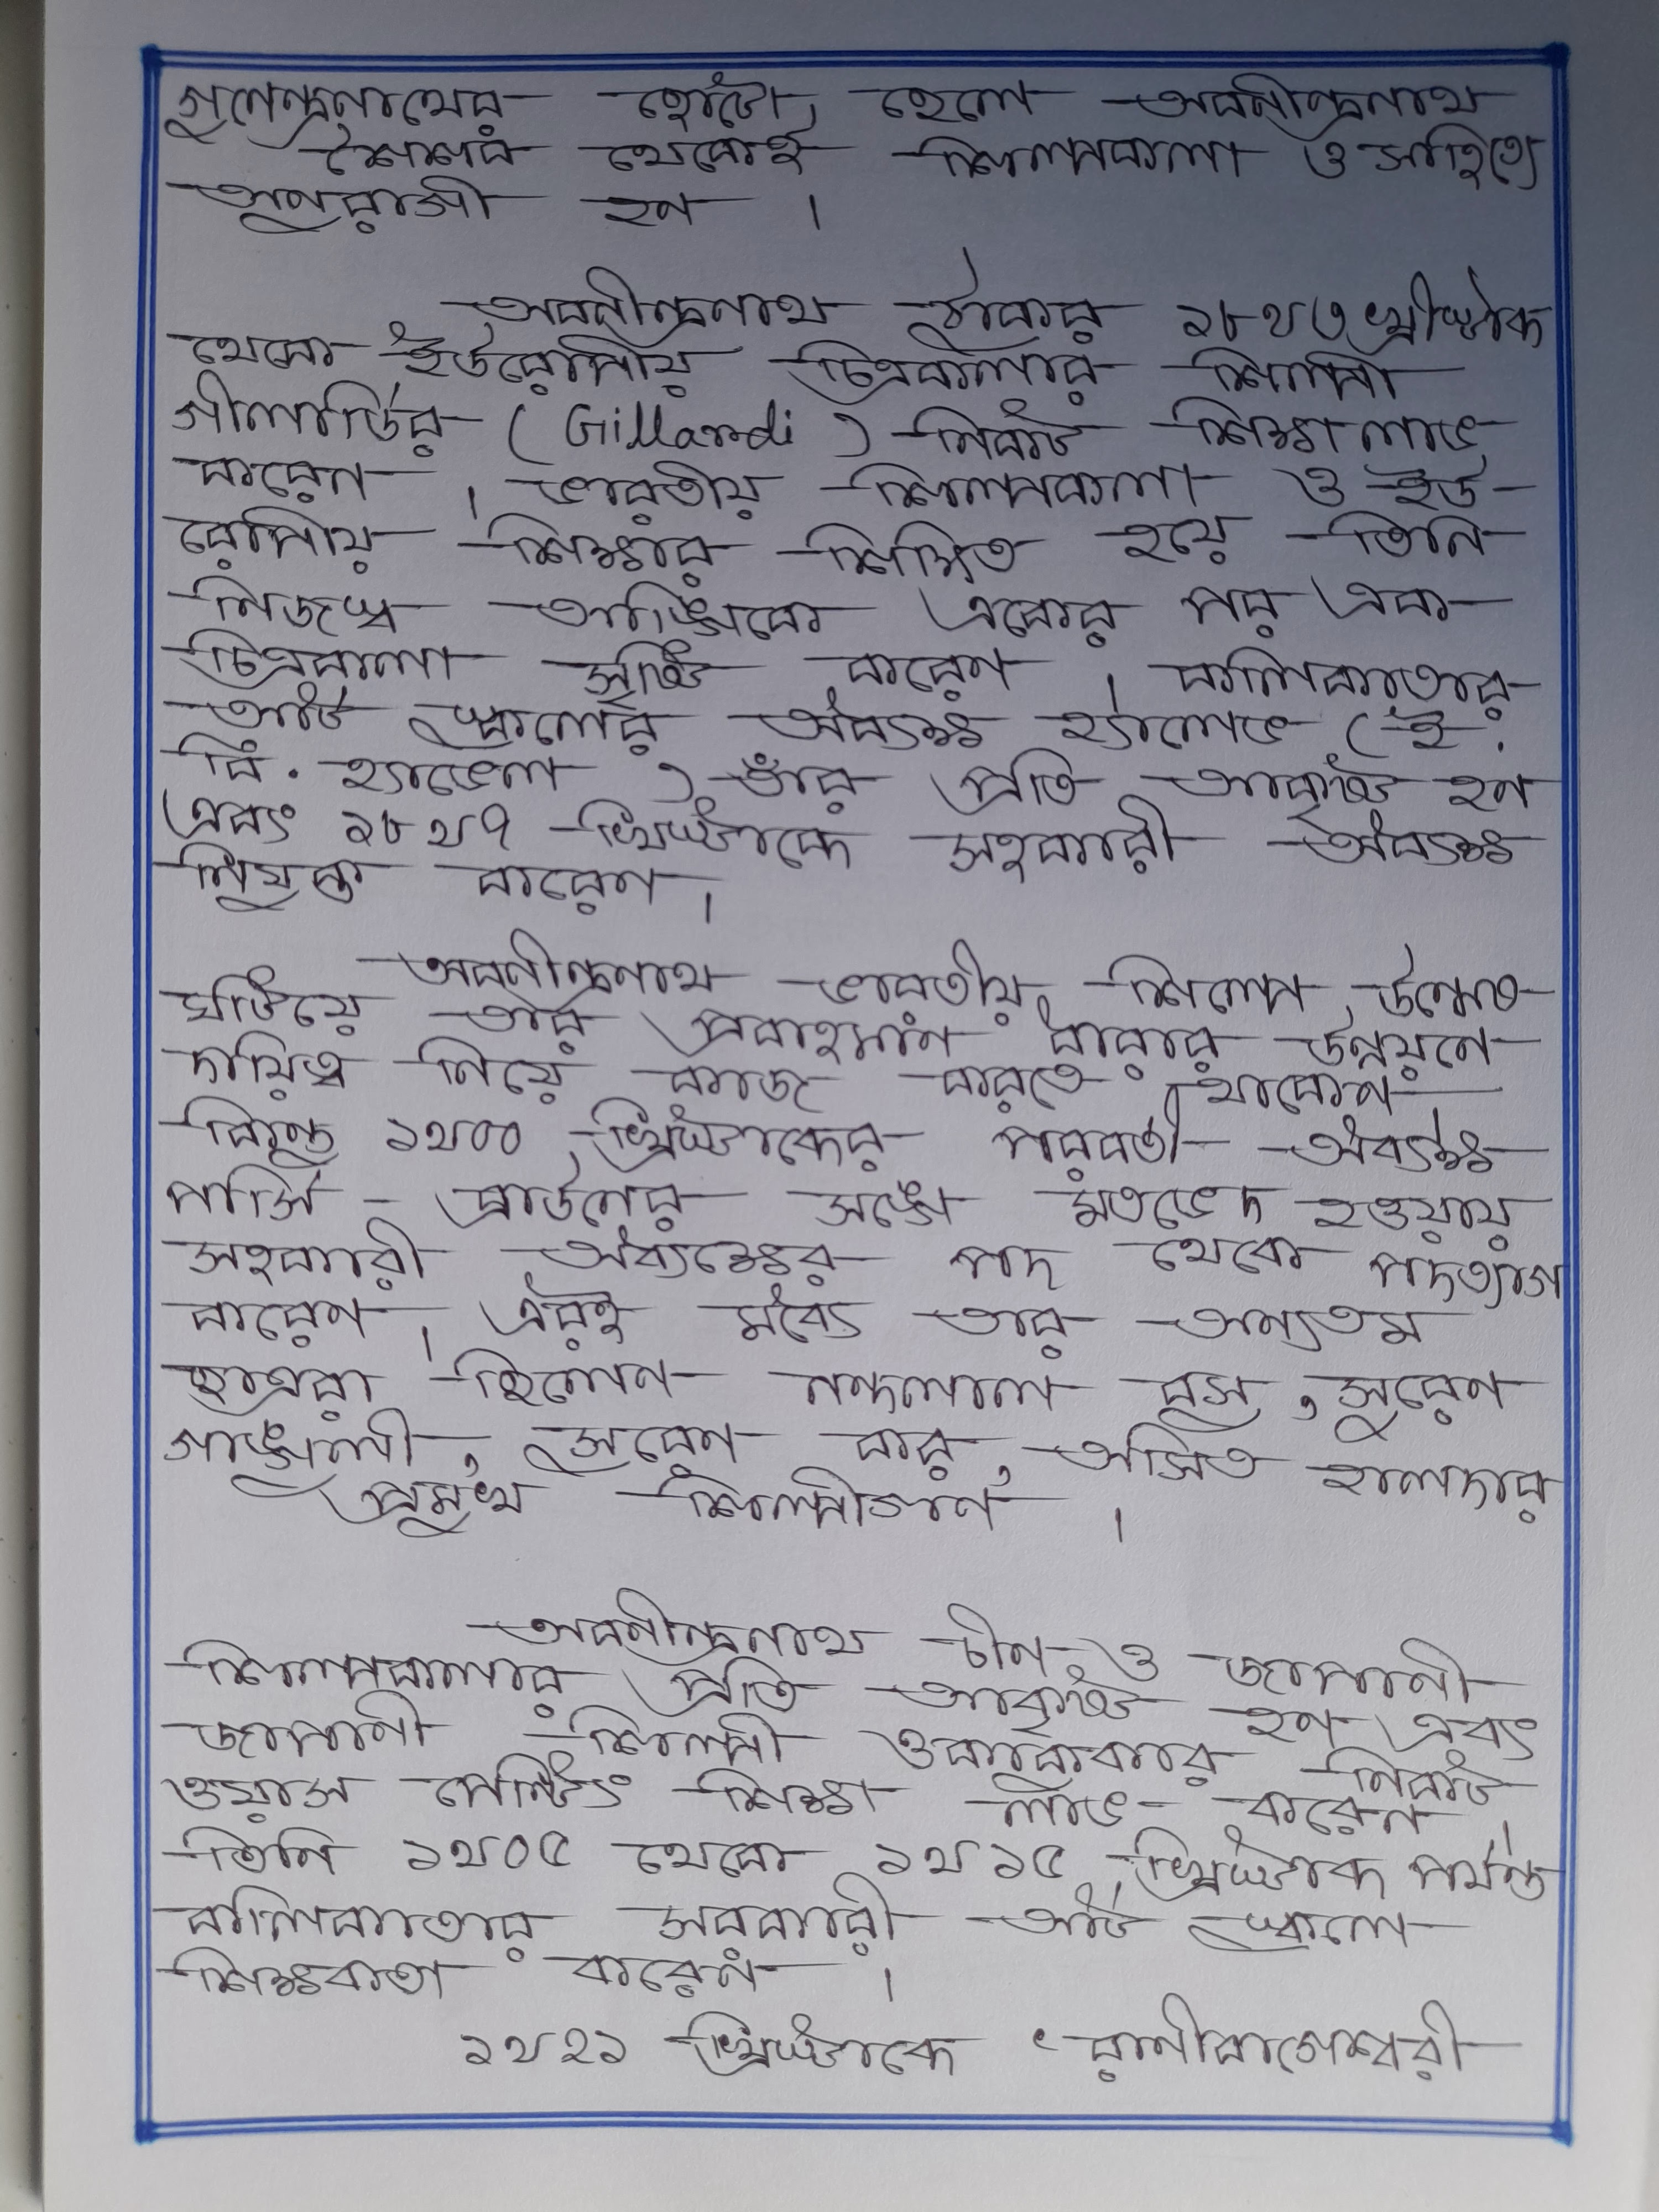 গুনেন্দ্রনাথের ছোটো ছেলে অবনীন্দ্রনাথ
শৈশব থেকেই শিল্পকলা ও সাহিত্যে
অনুরাগী হন ।
অবনীন্দ্রনাথ ঠাকুর ১৮৯৬ খ্রীষ্টাব্দ
থেকে ইউরোপিয় চিত্রকলার শিল্পী
গীলার্ডির ( Gillardi ) নিকট শিক্ষা লাভ
করেন । ভারতীয় শিল্পকলা ও ইউ-
রোপিয় শিক্ষার শিক্ষিত হয়ে তিনি
নিজস্ব আঙ্গিকে একের পর এক
চিত্রকলা সৃষ্টি করেন । কলিকাতার
আর্ট স্কুলের অধ্যক্ষ হ্যালেভ ( ই.
বি. হ্যাভেল ) তাঁর প্রতি আকৃষ্ট হন
এবং ১৮৯৭ খ্রিষ্টাব্দে সহকারী অধ্যক্ষ
নিযুক্ত করেন ।
অবনীন্দ্রনাথ ভারতীয় শিল্পে উন্মেষ
ঘটিয়ে তার প্রবাহমান ধারার উন্নয়নে
দায়িত্ব নিয়ে কাজ করতে থাকেন ।
কিন্তু ১৯০০ খ্রিষ্টাব্দের পরবর্তী অধ্যক্ষ
পার্সি - ব্রাউনের সঙ্গে মতভেদ হওয়ায়
সহকারী অধ্যক্ষের পদ থেকে পদত্যাগ
করেন । এরই মধ্যে তার অন্যতম
ছাত্ররা ছিলেন নন্দলাল বসু , সুরেন
গাঙ্গুলী , সুরেন কর , অসিত হালদার
প্রমুখ শিল্পীগণ ।
অবনীন্দ্রনাথ চীন ও জাপানী
শিল্পকলার প্রতি আকৃষ্ট হন এবং
জাপানী শিল্পী ওকাকুরার নিকট
ওয়াস পেন্টিং শিক্ষা লাভ করেন ।
তিনি ১৯০৫ থেকে ১৯১৫ খ্রিষ্টাব্দ পর্যন্ত
কলিকাতার সরকারী আর্ট স্কুলে
শিক্ষকতা করেন ।
১৯২১ খ্রিষ্টাব্দে ' রাণীবাগেশ্বরী